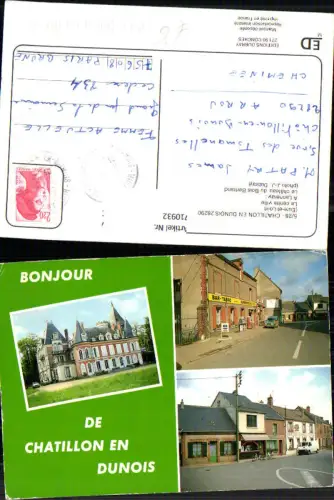 ED
EDITIONS DUBRAY
27190 CONCHES
Marque déposée
Reproduction interdite
Imprimé en France
5/28 - CHATILLON EN DUNOIS 28290
(Eure-et-Loir)
Le centre ville
Le château du Bois Bertrand
à Lanneray
(photo J.-J. Dubray)
Artikel Nr.:
710932
M. PATAY James
Châtillon-en-Dunois
28290 ARROU
CHEMINÉE
FEMME ACTUELLE
Cedex 134
75160 PARIS BRUNE
2,20
BONJOUR
BAR - TABAC
DE
CHATILLON EN
DUNOIS